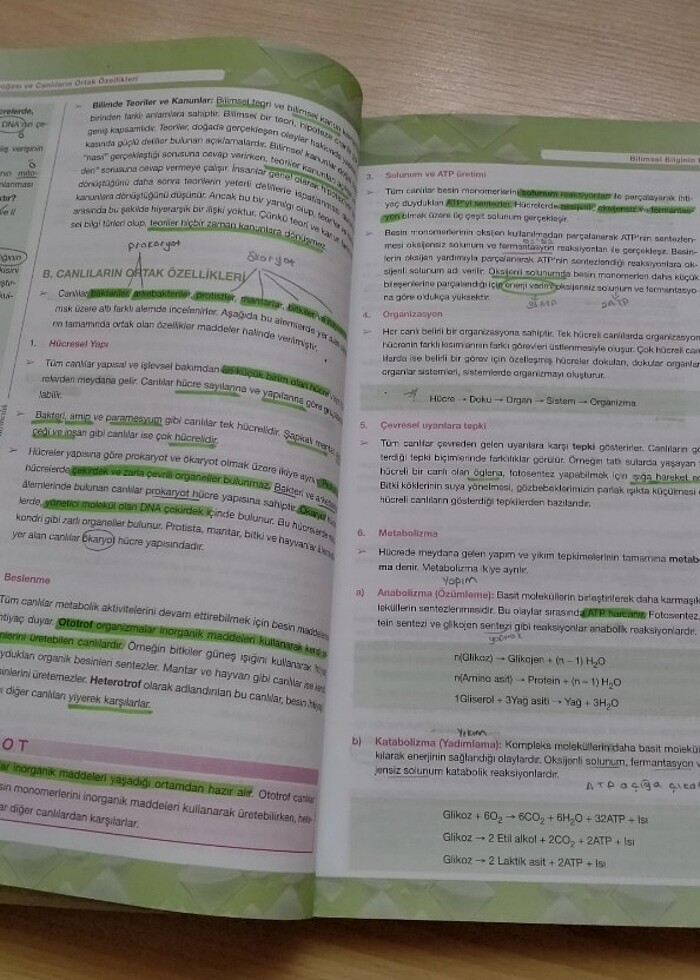 ve Canlıların Ortak Özellikleri
relerde,
DNA'nın çe-
iş verişinin
nın mito-
dır?
Bilimde Teoriler ve Kanunlar: Bilimsel teori ve bilimsel kanun
birinden farklı anlamlara sahiptir. Bilimsel bir teori, hipoteze
geniş kapsamlıdır. Teoriler, doğada gerçekleşen olaylar hakkında
kasında güçlü deliller bulunan açıklamalardır. Bilimsel kanunlar
"nasıl" gerçekleştiği sorusuna cevap verirken, teoriler kanunları
den" sorusuna cevap vermeye çalışır. İnsanlar genel olarak
dönüştüğünü daha sonra teorilerin yeterli delillerle ispatlanması
kanunlara dönüştüğünü düşünür. Ancak bu bir yanılgı olup, teoriler
arasında bu şekilde hiyerarşik bir ilişki yoktur. Çünkü teori ve
sel bilgi türleri olup, teoriler hiçbir zaman kanunlara dönüşmez.
prokaryot
ökaryot
B. CANLILARIN ORTAK ÖZELLİKLERİ
Canlılar bakteriler, arkebakteriler, protistler, mantarlar, bitkiler
mak üzere altı farklı alemde incelenirler. Aşağıda bu alemlerde yer
rın tamamında ortak olan özellikler maddeler halinde verilmiştir.
1. Hücresel Yapı
Tüm canlılar yapısal ve işlevsel bakımdan en küçük birim olan hücre
relerden meydana gelir. Canlılar hücre sayılarına ve yapılarına göre
labilir.
Bakteri, amip ve paramesyum gibi canlılar tek hücrelidir. Şapkalı
çeği ve insan gibi canlılar ise çok hücrelidir.
Hücreler yapısına göre prokaryot ve ökaryot olmak üzere ikiye
hücrelerde çekirdek ve zarla çevrili organeller bulunmaz. Bakteri ve
âlemlerinde bulunan canlılar prokaryot hücre yapısına sahiptir. Ökaryot
lerde, yönetici molekül olan DNA çekirdek içinde bulunur. Bu hücrelerde
kondri gibi zarlı organeller bulunur. Protista, mantar, bitki ve hayvanlar
yer alan canlılar ökaryot hücre yapısındadır.
Beslenme
Tüm canlılar metabolik aktivitelerini devam ettirebilmek için besin
ihtiyaç duyar. Ototrof organizmalar inorganik maddeleri kullanarak
üretebilen canlılardır. Örneğin bitkiler güneş ışığını kullanarak
duydukları organik besinleri sentezler. Mantar ve hayvan gibi canlılar ise
besinlerini üretemezler. Heterotrof olarak adlandırılan bu canlılar, besin
diğer canlıları yiyerek karşılarlar.
OT
inorganik maddeleri yaşadığı ortamdan hazır alır. Ototrof canlılar
besin monomerlerini inorganik maddeleri kullanarak üretebilirken,
diğer canlılardan karşılarlar.
Bilimsel Bilginin
3. Solunum ve ATP üretimi
Tüm canlılar besin monomerlerini solunum reaksiyonları ile parçalayarak ihti-
yaç duydukları ATP'yi sentezler. Hücrelerde oksijenli, oksijensiz ve fermantas-
yon olmak üzere üç çeşit solunum gerçekleşir.
Besin monomerlerinin oksijen kullanılmadan parçalanarak ATP'nin sentezlen-
mesi oksijensiz solunum ve fermantasyon reaksiyonları ile gerçekleşir. Besin-
lerin oksijen yardımıyla parçalanarak ATP'nin sentezlendiği reaksiyonlara ok-
sijenli solunum adı verilir. Oksijenli solunumda besin monomerleri daha küçük
bileşenlerine parçalandığı için enerji verimi oksijensiz solunum ve fermantasyo-
na göre oldukça yüksektir.
2ATP
4. Organizasyon
Her canlı belirli bir organizasyona sahiptir. Tek hücreli canlılarda organizasyon
hücrenin farklı kısımlarının farklı görevleri üstlenmesiyle oluşur. Çok hücreli can-
lılarda ise belirli bir görev için özelleşmiş hücreler dokuları, dokular organları
organlar sistemleri, sistemlerde organizmayı oluşturur.
Hücre → Doku → Organ → Sistem → Organizma
5. Çevresel uyarılara tepki
Tüm canlılar çevreden gelen uyarılara karşı tepki gösterirler. Canlıların gös-
terdiği tepki biçimlerinde farklılıklar görülür. Örneğin tatlı sularda yaşayan
hücreli bir canlı olan öglena, fotosentez yapabilmek için ışığa hareket
Bitki köklerinin suya yönelmesi, gözbebeklerimizin parlak ışıkta küçülmesi
hücreli canlıların gösterdiği tepkilerden bazılarıdır.
6. Metabolizma
Hücrede meydana gelen yapım ve yıkım tepkimelerinin tamamına metab
ma denir. Metabolizma ikiye ayrılır.
yapım
a) Anabolizma (Özümleme): Basit moleküllerin birleştirilerek daha karmaşık
leküllerin sentezlenmesidir. Bu olaylar sırasında ATP harcanır. Fotosentez,
tein sentezi ve glikojen sentezi gibi reaksiyonlar anabolik reaksiyonlardır.
n(Glikoz) → Glikojen + (n – 1) H₂O
n(Amino asit) → Protein + (n – 1) H₂O
1Gliserol + 3Yağ asiti → Yağ + 3H₂O
Yıkım
b) Katabolizma (Yadımlama): Kompleks moleküllerin daha basit molekül
kılarak enerjinin sağlandığı olaylardır. Oksijenli solunum, fermantasyon v
jensiz solunum katabolik reaksiyonlardır.
ATP açığa çıkar
Glikoz + 6O₂ → 6CO₂ + 6H₂O + 32ATP + Isı
Glikoz → 2 Etil alkol + 2CO₂ + 2ATP + Isı
Glikoz → 2 Laktik asit + 2ATP + Isı